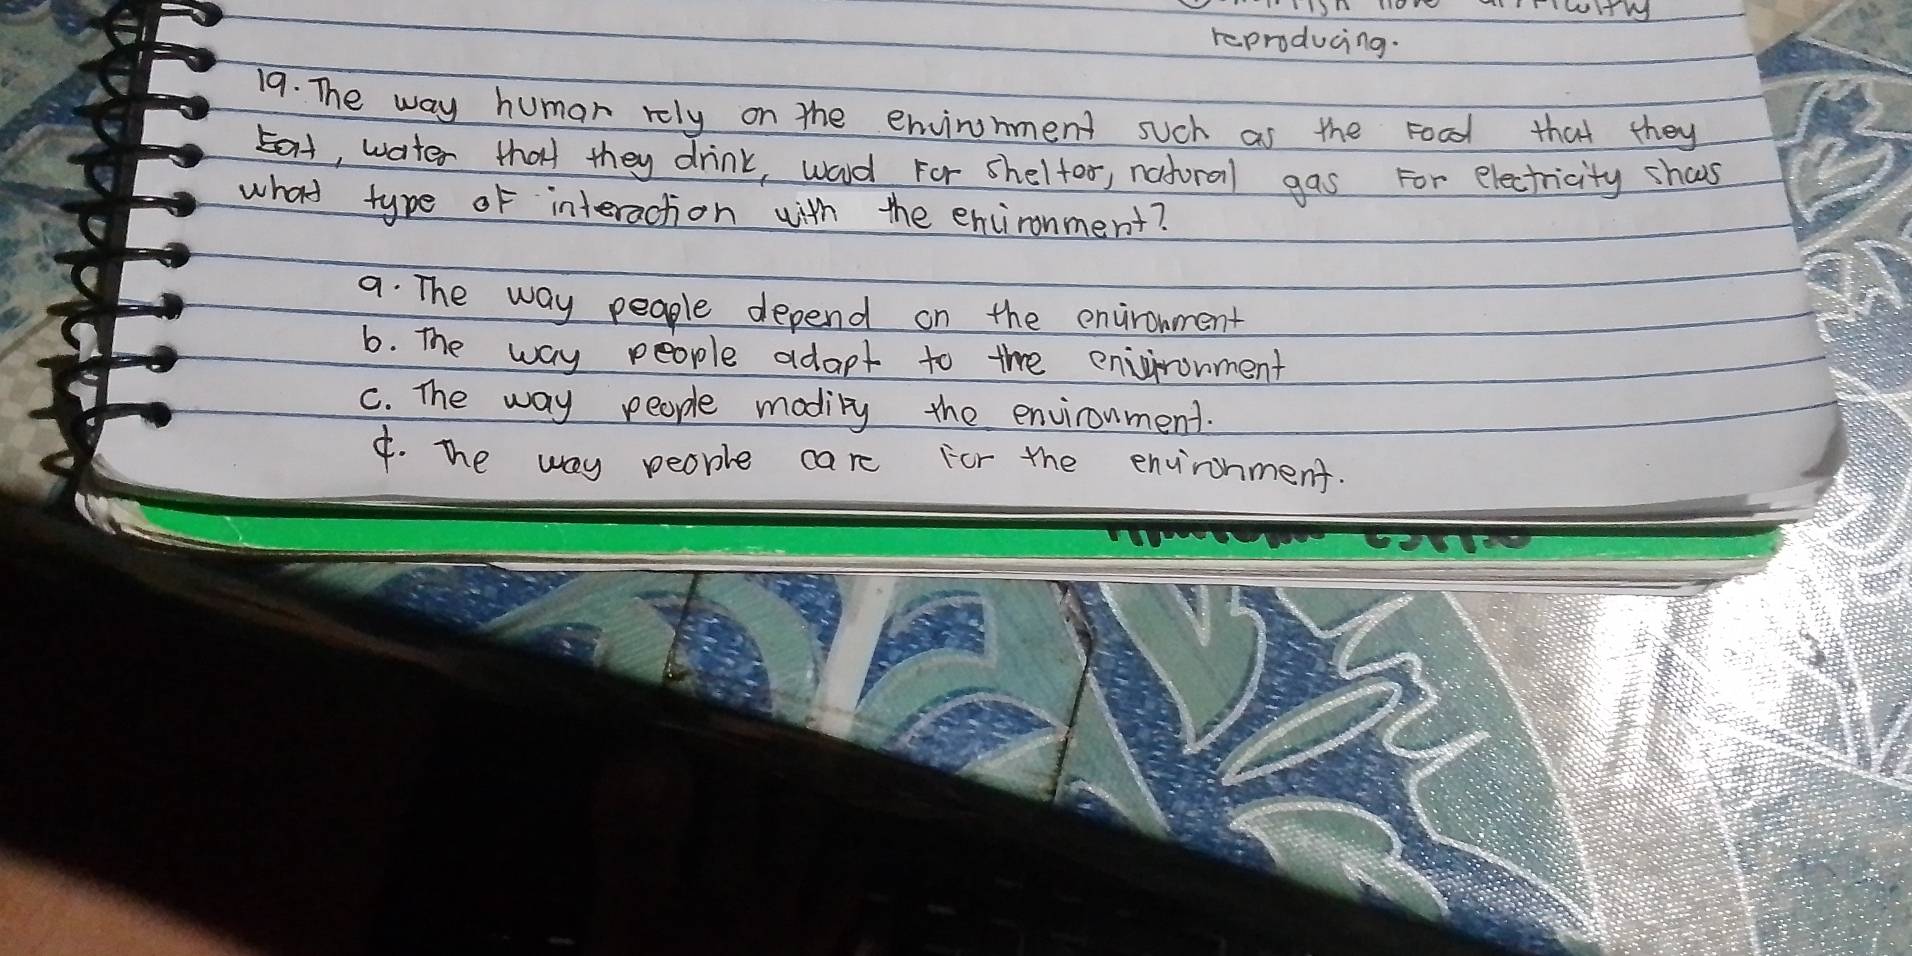 reproducing.
19. The way human rely on the environment such as the Food that they
Eat, water that they drink, wood For shelter, natural gas For electricity shows
what type of interaction with the environment?
a. The way people depend on the environment
b. The way people adapt to the environment
c. The way people modify the environment.
d. The way people care for the environment.